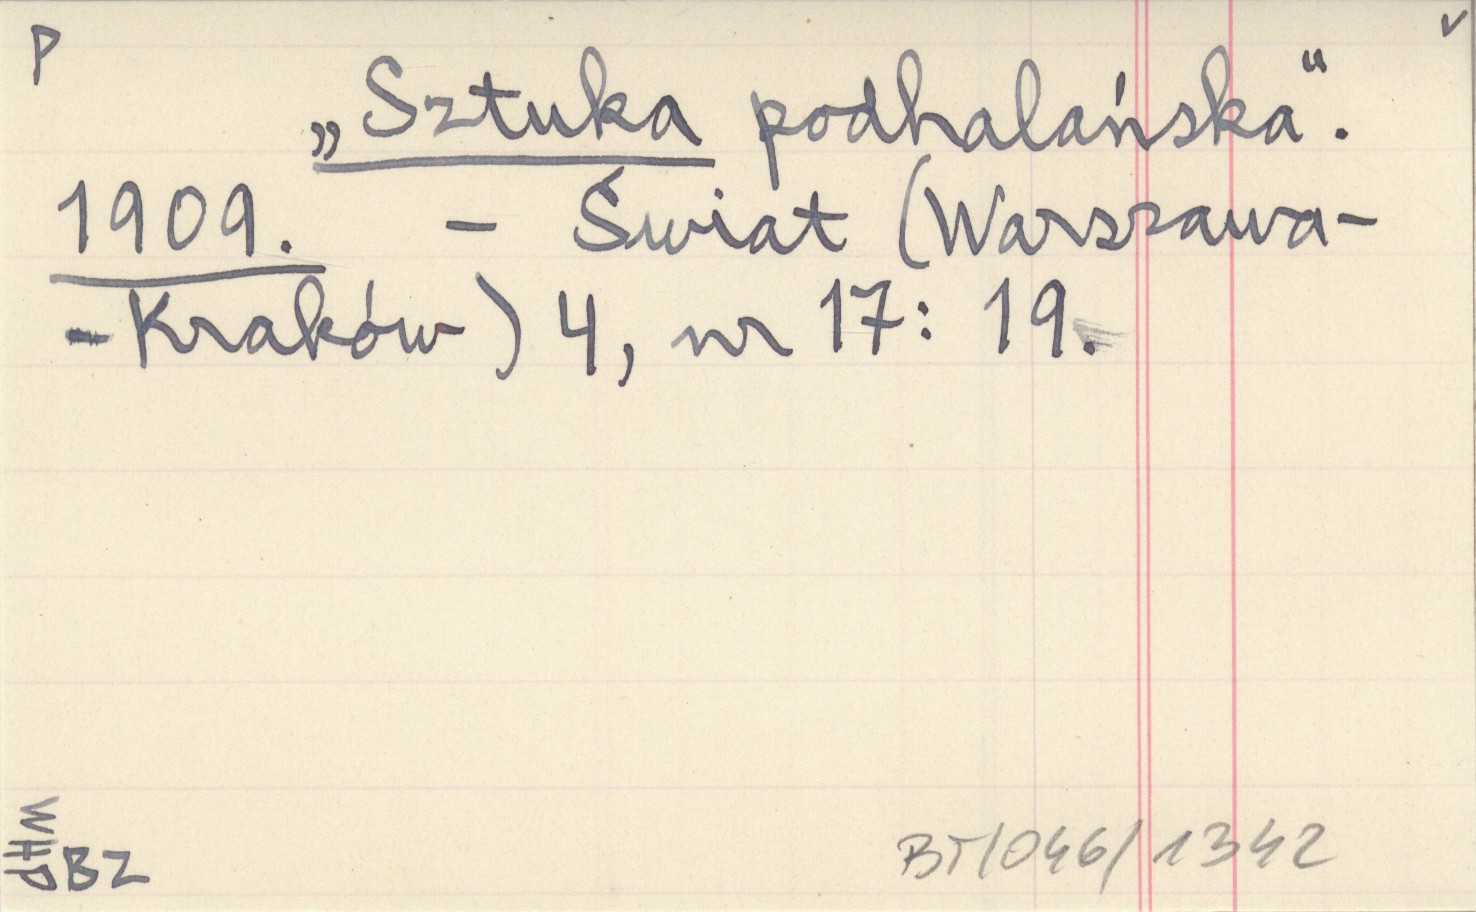 P v
„Sztuka podhalańska".
1909. - Świat (Warszawa-
-Kraków) 4, nr 17: 19.
BZ BT/046/1342